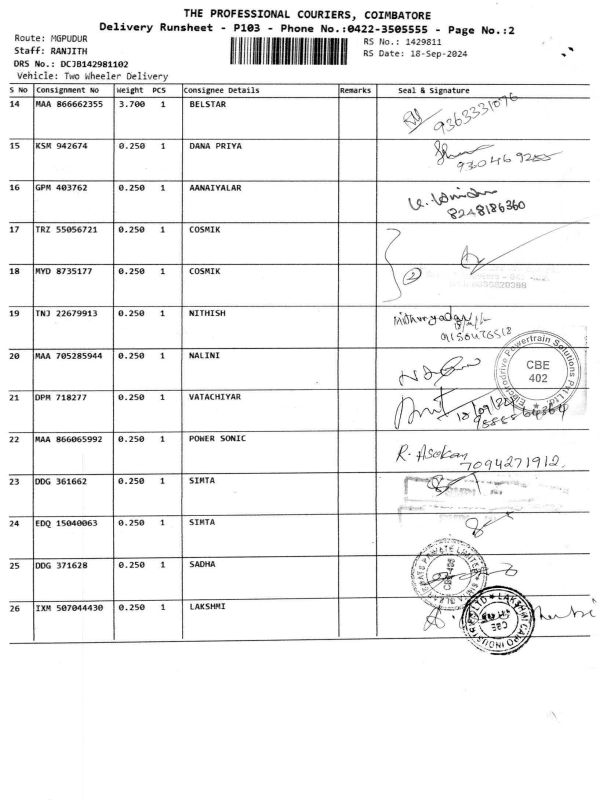 THE PROFESSIONAL COURIERS, COIMBATORE
Delivery Runsheet - P103 - Phone No.:0422-3505555 - Page No.:2
Route: MGPUDUR
RS No.: 1429811
Staff: RANJITH
RS Date: 18-Sep-2024
DRS No.: DCJB142981102
Vehicle: Two Wheeler Delivery
S No Consignment No Weight PCS Consignee Details Remarks Seal & Signature
14 MAA 866662355 3.700 1 BELSTAR
9363331076
15 KSM 942674 0.250 1 DANA PRIYA
16 GPM 403762 0.250 1 AANAIYALAR
8248186360
17 TRZ 55056721 0.250 1 COSMIK
18 MYD 8735177 0.250 1 COSMIK
2
19 TNJ 22679913 0.250 1 NITHISH
20 MAA 705285944 0.250 1 NALINI
Electrodrive Powertrain Solutions Pvt Ltd
CBE
402
21 DPM 718277 0.250 1 VATACHIYAR
22 MAA 866065992 0.250 1 POWER SONIC
R. Asokan
7094271912.
23 DDG 361662 0.250 1 SIMTA
24 EDQ 15040063 0.250 1 SIMTA
25 DDG 371628 0.250 1 SADHA
26 IXM 507044430 0.250 1 LAKSHMI
CBE